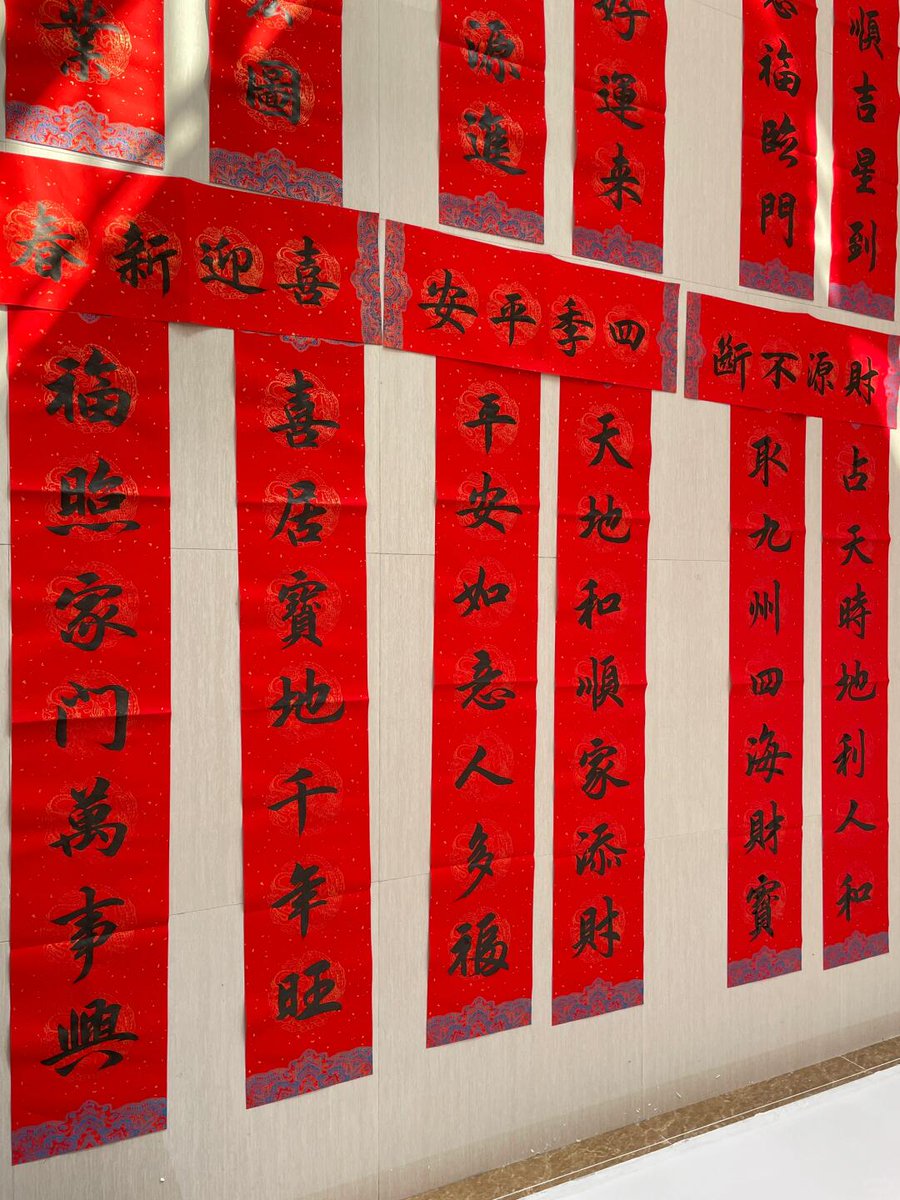 順吉星到
福臨門
好運来
源進
圖
業
財源不斷
占天時地利人和
取九州四海財寶
四季平安
天地和順家添財
平安如意人多福
喜迎新春
喜居寶地千年旺
福照家门萬事興